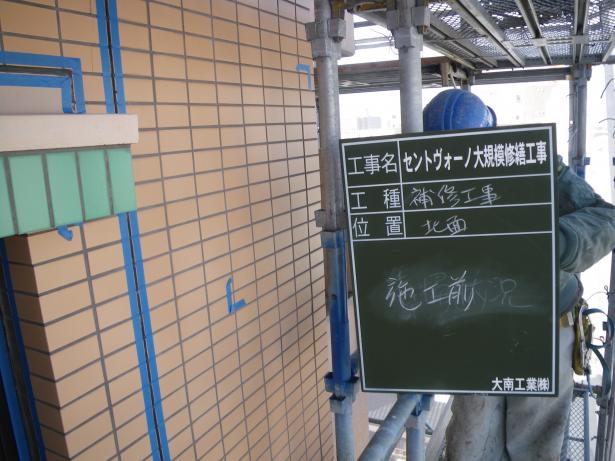 工事名 セントヴォーノ大規模修繕工事
工種 補修工事
位置 北面
施工前状況
大南工業㈱